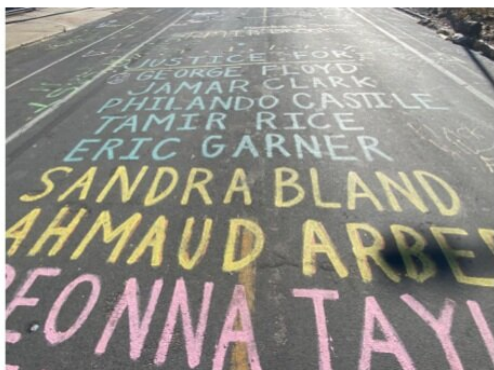 JUSTICE FOR
GEORGE FLOYD
JAMAR CLARK
PHILANDO CASTILE
TAMIR RICE
ERIC GARNER
SANDRA BLAND
AHMAUD ARBE
REONNA TAYL